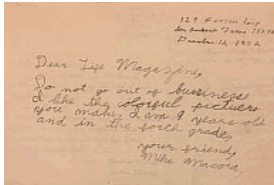 129
San Antonio Texas
December 12, 1972
Dear Life Magazine,
Do not go out of bussiness
I like the colorful pictures
you make. I am 9 years old
and in the forth grade,
your friend,
Mike